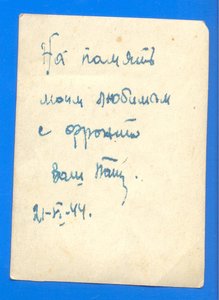 На память
моим любимым
с фронта
Ваш Папа.
21-VI-44.